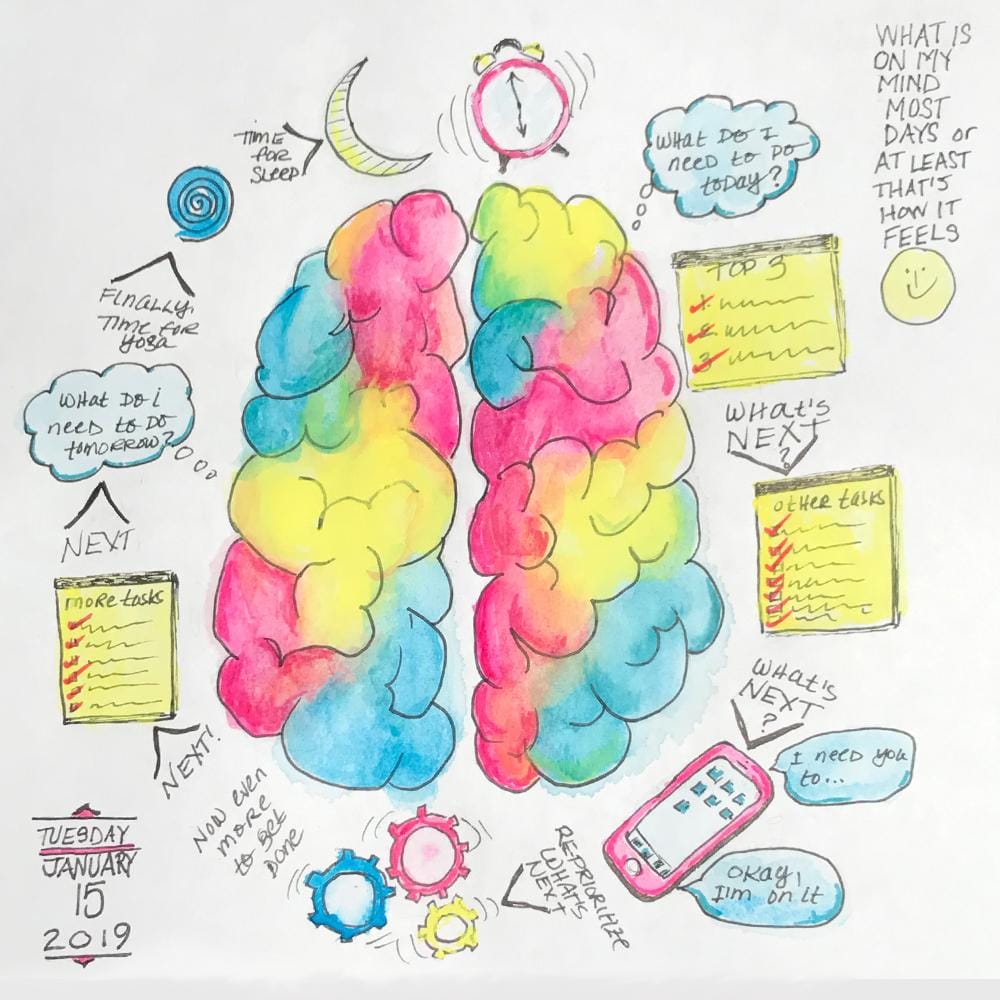 WHAT IS
ON MY
MIND
MOST
DAYS or
AT LEAST
THAT'S
HOW IT
FEELS
WHAT DO I
need to DO
today?
TOP 3
1.
2.
3
WHAT'S
NEXT
?
other tasks
WHAT'S
NEXT
?
I need you
to...
Okay,
I'm on it
REPRIORITIZE
WHAT'S
NEXT
NOW even
more
to get
Done
NEXT!
more tasks
NEXT
WHAT DO i
need to DO
tomorrow?
Finally,
Time for
yoga
Time
for
Sleep
TUESDAY
JANUARY
15
2019